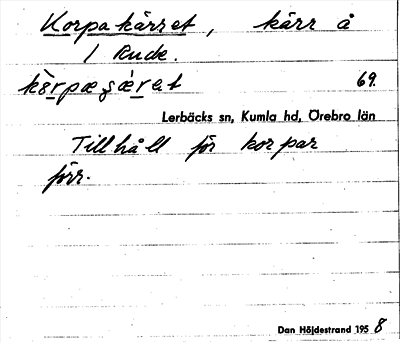 Korpakärret, kärr å
1 Rude.
kòrpaçæ̀ret 69.
Lerbäcks sn, Kumla hd, Örebro län
Tillhåll för korpar
förr.
Dan Höjdestrand 1958